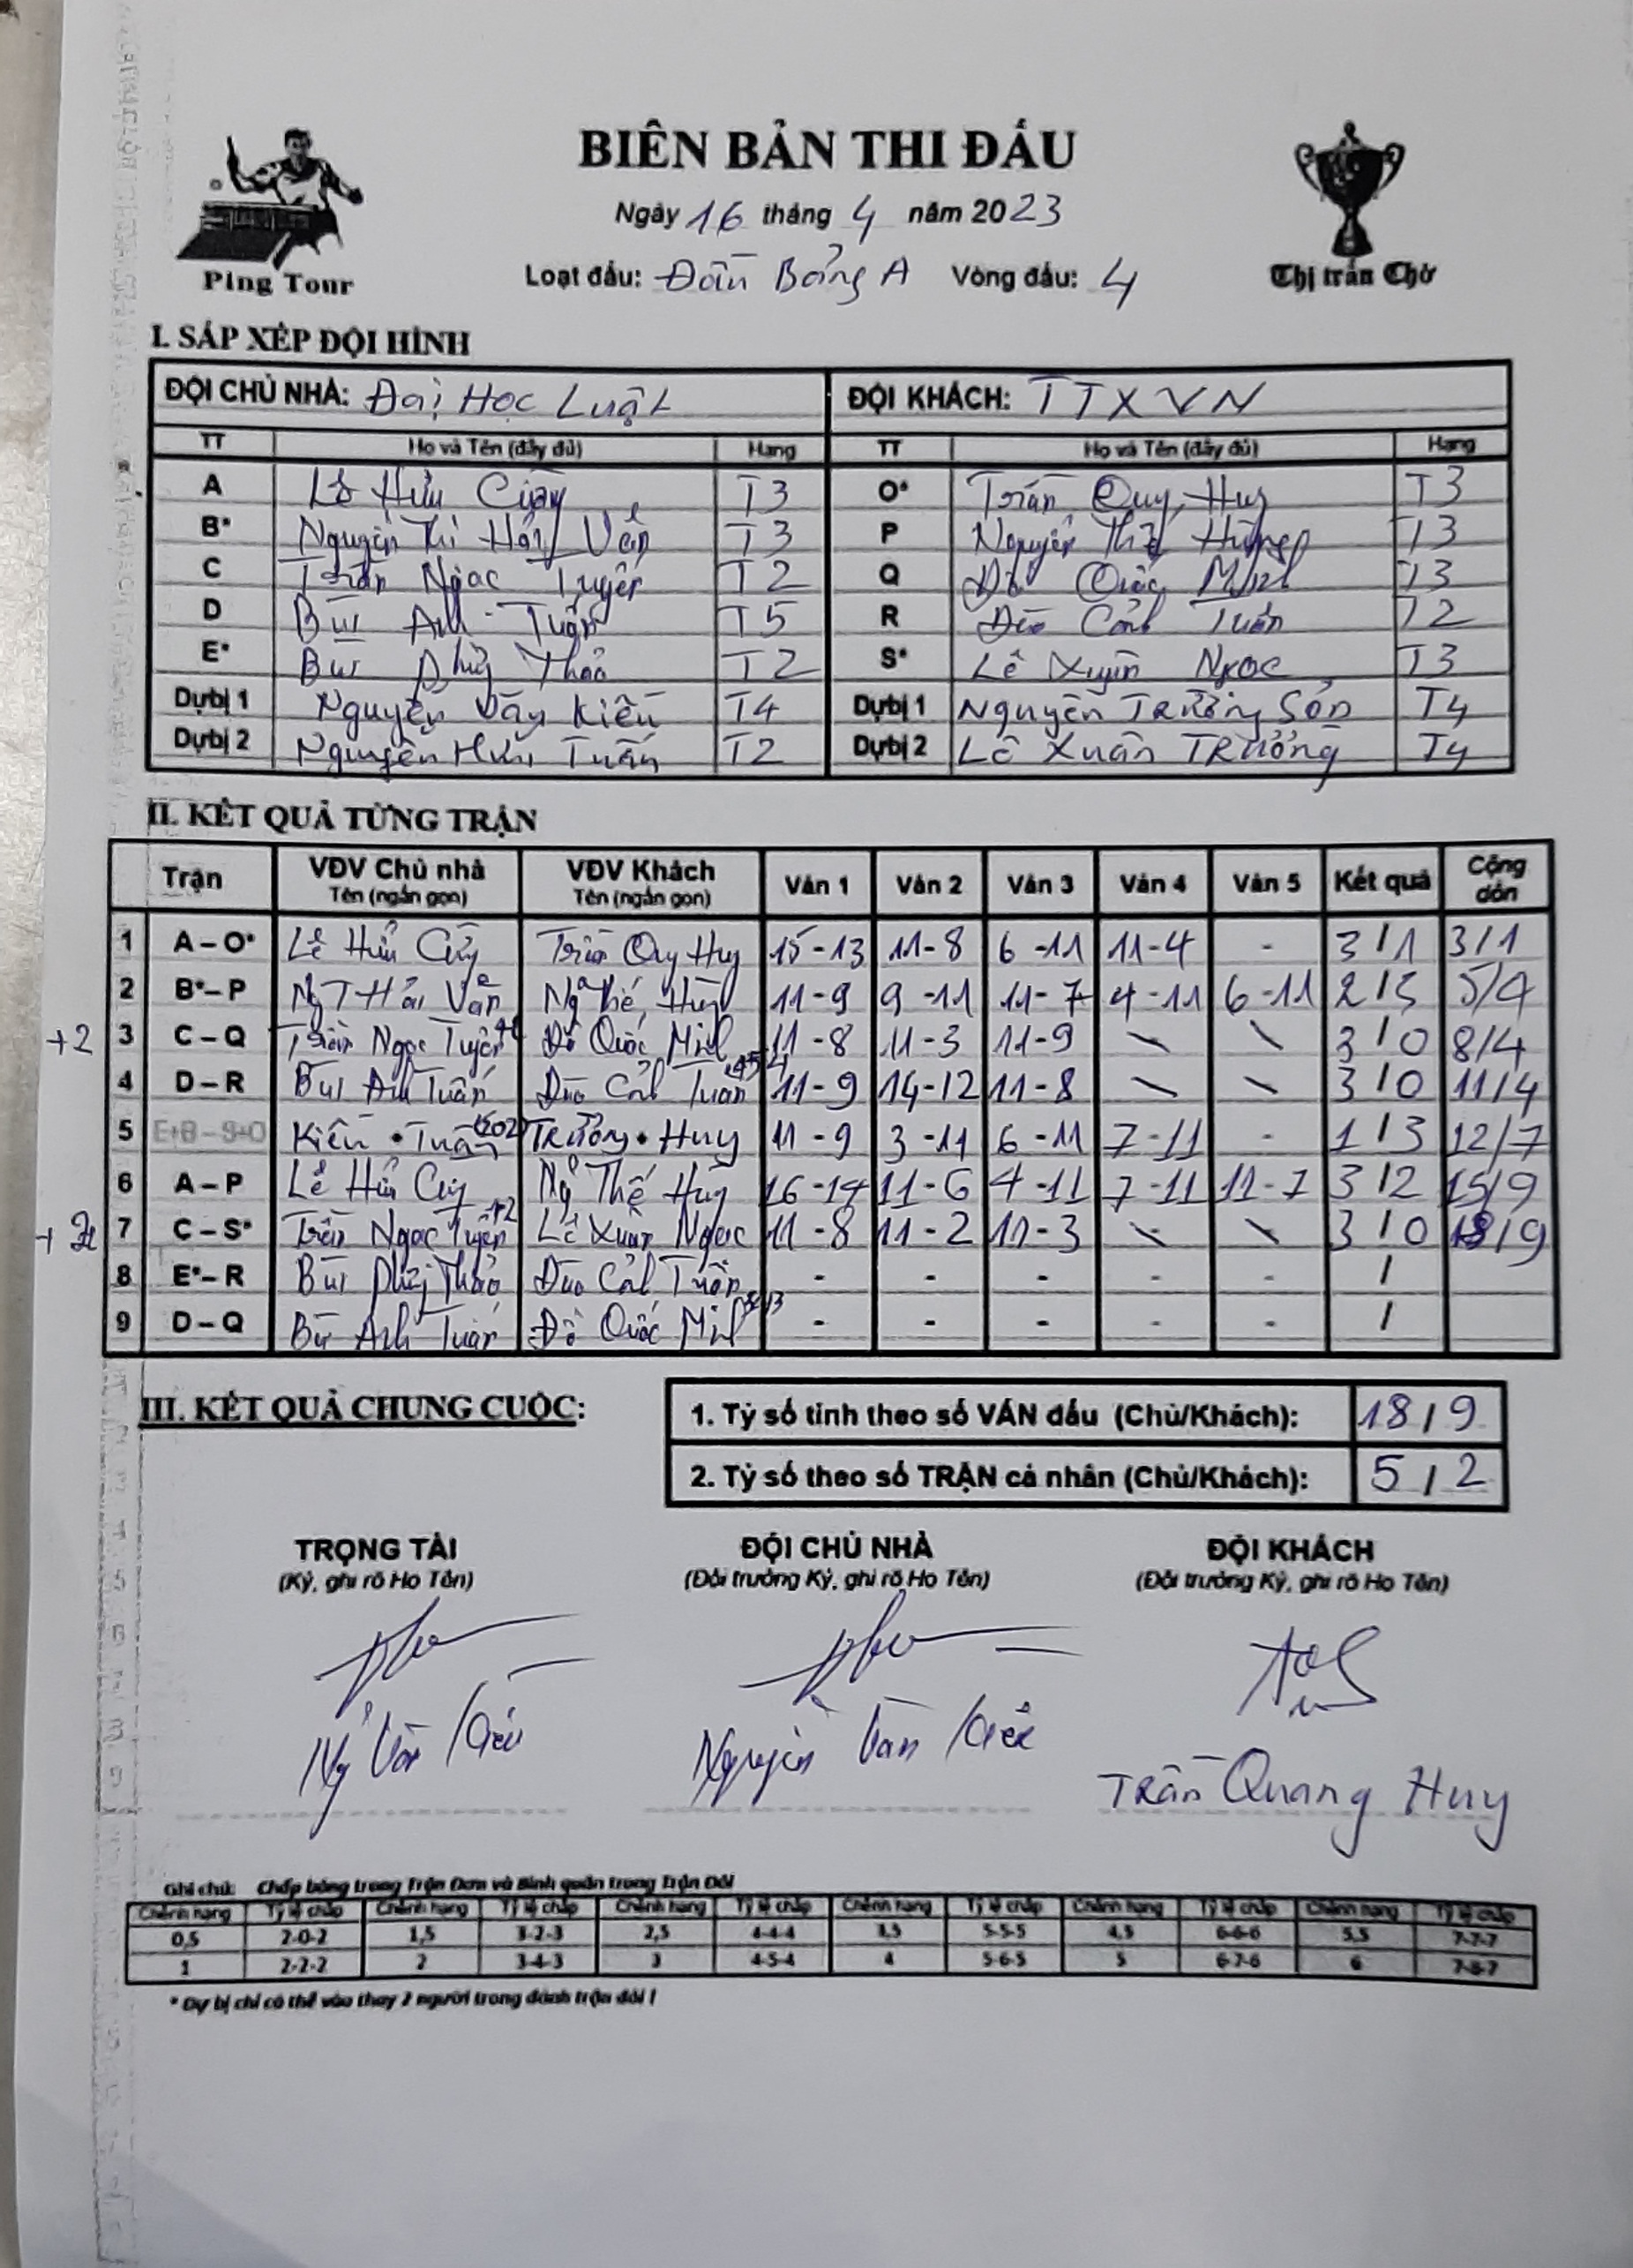 BIÊN BẢN THI ĐẤU
Ngày 16 tháng 4 năm 2023
Ping Tour
Loạt đấu: Đấu Bảng A Vòng đấu: 4
Thị trấn Chờ
I. SẮP XẾP ĐỘI HÌNH
ĐỘI CHỦ NHÀ: Đại Học Luật ĐỘI KHÁCH: TTXVN
TT Họ và Tên (đầy đủ) Hạng TT Họ và Tên (đầy đủ) Hạng
A Lê Hữu T3 O* Trần Quy Huy T3
B* Nguyễn Thị Hải Vân T3 P Nguyễn Thế Hùng T3
C Trần Ngọc Tuyến T2 Q Đỗ Quốc Minh T3
D Bùi Anh Tuấn T5 R Đào Cảnh Tuấn T2
E* Bùi Thảo T2 S* Lê Xuân Ngọc T3
Dựbị 1 Nguyễn Văn Kiền T4 Dựbị 1 Nguyễn Trường Sơn T4
Dựbị 2 Nguyễn Hữu Tuấn T2 Dựbị 2 Lê Xuân Trường T4
II. KẾT QUẢ TỪNG TRẬN
Trận VĐV Chủ nhà Tên (ngắn gọn) VĐV Khách Tên (ngắn gọn) Ván 1 Ván 2 Ván 3 Ván 4 Ván 5 Kết quả Cộng dồn
1 A – O* Lê Hữu Trần Quy Huy 15-13 11-8 6-11 11-4 - 3/1 3/1
2 B* – P Ng T Hải Vân Ng Thế Hùng 11-9 9-11 11-7 4-11 6-11 2/3 5/4
+2 3 C – Q Trần Ngọc Tuyến Đỗ Quốc Minh 11-8 11-3 11-9 \ \ 3/0 8/4
4 D – R Bùi Anh Tuấn Đào Cảnh Tuấn 11-9 14-12 11-8 \ \ 3/0 11/4
5 E+B – S+O Kiền • Tuấn (202) Trường • Huy 11-9 3-11 6-11 7-11 - 1/3 12/7
6 A – P Lê Hữu Ng Thế Hùng 16-14 11-6 4-11 7-11 11-7 3/2 15/9
+2 7 C – S* Trần Ngọc Tuyến +2 Lê Xuân Ngọc 11-8 11-2 11-3 \ \ 3/0 18/9
8 E* – R Bùi Thảo Đào Cảnh Tuấn - - - - - /
9 D – Q Bùi Anh Tuấn Đỗ Quốc Minh - - - - - /
III. KẾT QUẢ CHUNG CUỘC:
1. Tỷ số tính theo số VÁN đấu (Chủ/Khách): 18/9
2. Tỷ số theo số TRẬN cá nhân (Chủ/Khách): 5/2
TRỌNG TÀI ĐỘI CHỦ NHÀ ĐỘI KHÁCH
(Ký, ghi rõ Họ Tên) (Đội trưởng Ký, ghi rõ Họ Tên) (Đội trưởng Ký, ghi rõ Họ Tên)
Ng Văn Kiền Nguyễn Văn Kiền Trần Quang Huy
Ghi chú: Chấp bóng trong Trận Đơn và Bình quân trong Trận Đôi
Chênh hạng Tỷ lệ chấp Chênh hạng Tỷ lệ chấp Chênh hạng Tỷ lệ chấp Chênh hạng Tỷ lệ chấp Chênh hạng Tỷ lệ chấp Chênh hạng Tỷ lệ chấp
0,5 2-0-2 1,5 3-2-3 2,5 4-4-4 3,5 5-5-5 4,5 6-6-6 5,5 7-7-7
1 2-2-2 2 3-4-3 3 4-5-4 4 5-6-5 5 6-7-6 6 7-8-7
* Dự bị chỉ có thể vào thay 2 người trong đánh trận đôi !